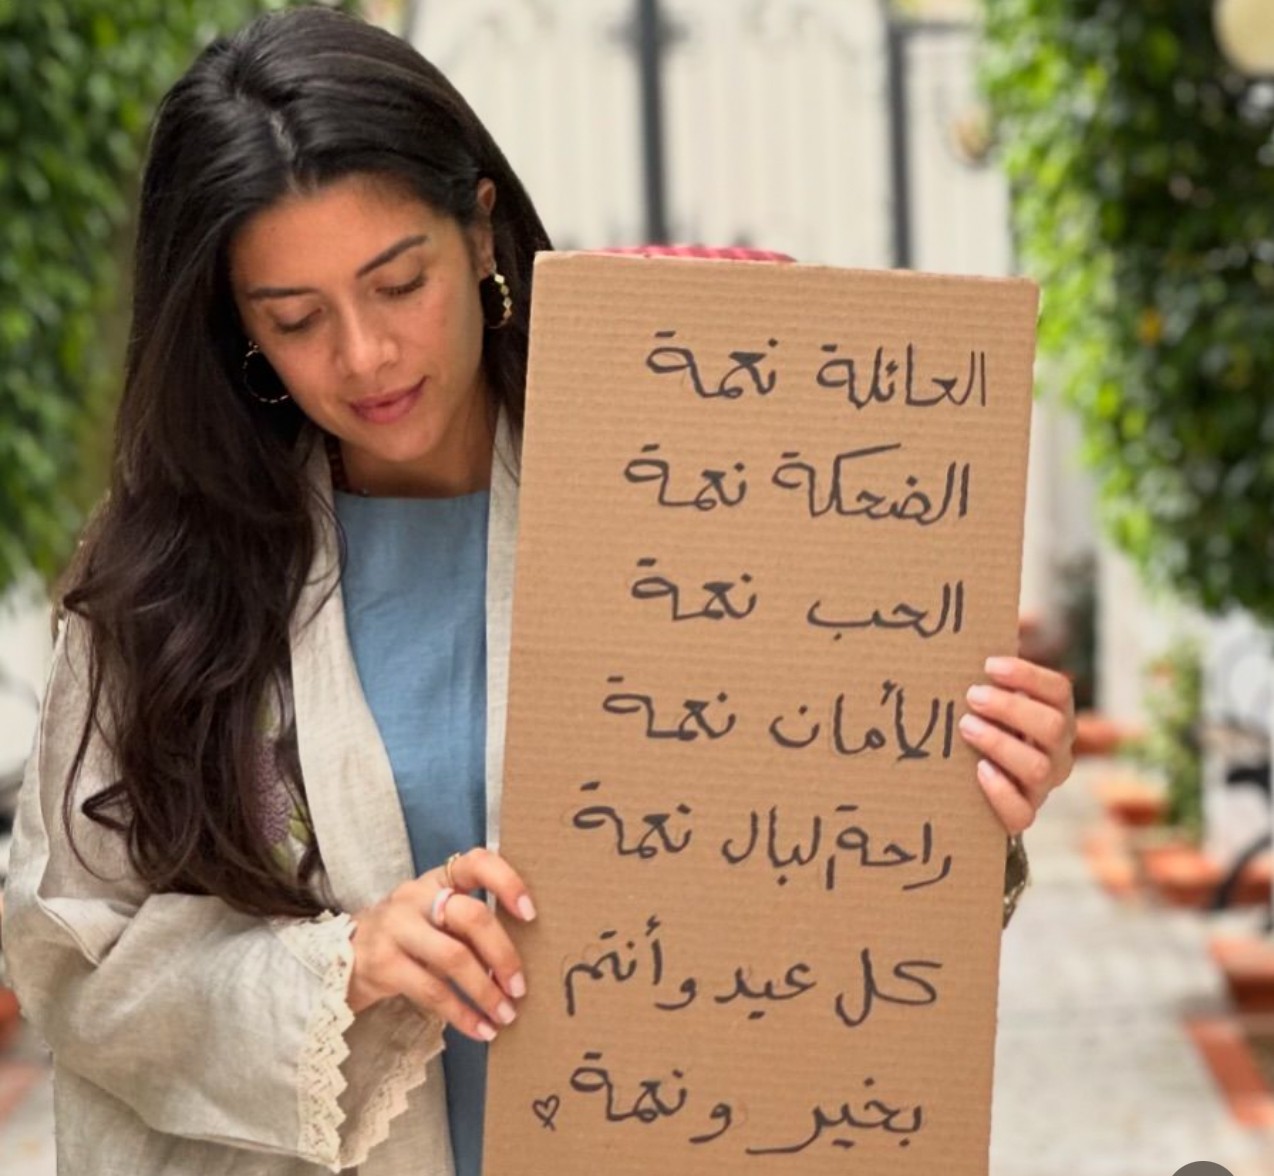 العائلة نعمة
الضحكة نعمة
الحب نعمة
الأمان نعمة
راحة البال نعمة
كل عيد وأنتم
بخير ونعمة